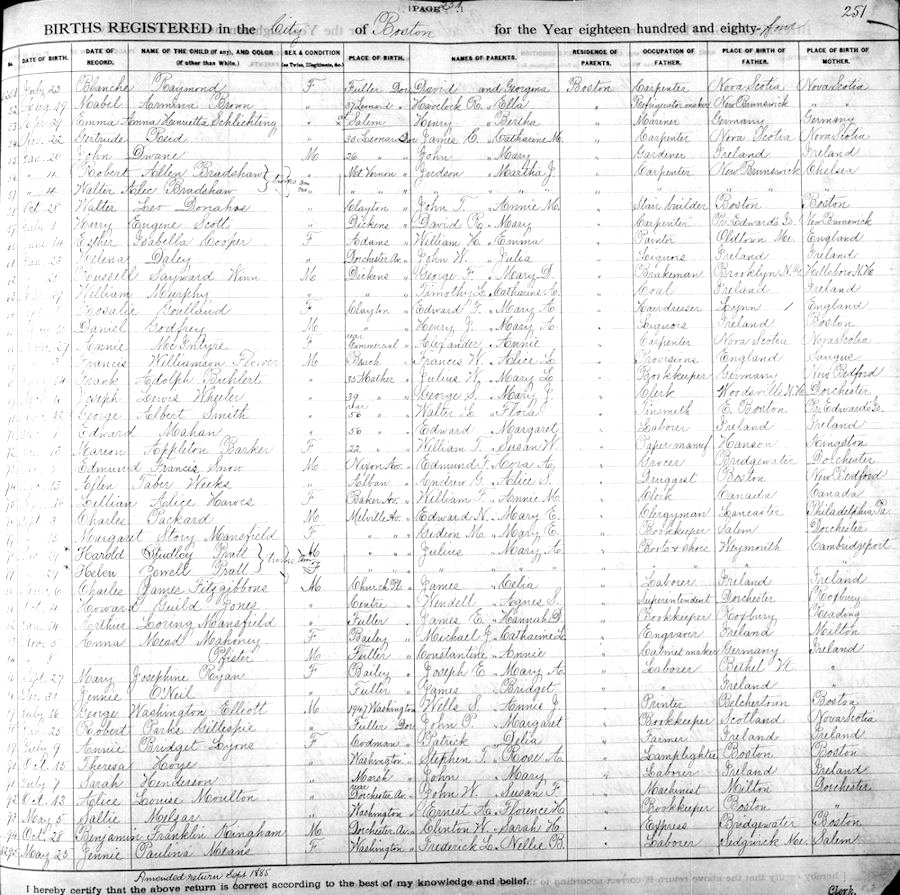 [PAGE 251]
251
BIRTHS REGISTERED in the City of Boston for the Year eighteen hundred and eighty-four
No. DATE OF BIRTH. DATE OF RECORD. NAME OF THE CHILD (if any), AND COLOR (If other than White.) SEX & CONDITION (as Twins, Illegitimate, &c.) PLACE OF BIRTH. NAMES OF PARENTS. RESIDENCE OF PARENTS. OCCUPATION OF FATHER. PLACE OF BIRTH OF FATHER. PLACE OF BIRTH OF MOTHER.
July 23 Blanche Raymond F Fuller Dor David and Georgina Boston Carpenter Nova Scotia Nova Scotia
Aug 19 Mabel Arminra Brown " 37 Leonard " Havelock R. " Ella " Refrigerator maker New Brunswick " "
29 Emma Anna Henrietta Schlichting " Salem " Henry " Bertha " Mariner Germany Germany
22 Gertrude Reid " 30 Leonard Dor James C. " Catharine M. " Carpenter Nova Scotia Nova Scotia
20 John Dwane M 26 " John " Mary " Gardener Ireland Ireland
" 4 Robert Allen Bradshaw Mt Vernon " Gordon " Martha J. " Carpenter New Brunswick Chelsea
" 4 Walter Alec Bradshaw " " " " " " " "
Oct 28 Walter Leo Donahoe " Clayton " John T. " Annie M. " Stair builder Boston Boston
1 Henry Eugene Scott " Dickens " David R. " Mary " Carpenter Pr. Edward's Is. New Brunswick
14 Esther Isabella Cooper F Adams " William H. " Emma " Painter Oldtown Me. England
23 Helena Daley " Dorchester Av. " John W. " Julia " Liquors Ireland Ireland
Russell Sayward Winn M Dickens " George F. " Mary D. " Brakeman Brooklyn N.Y. Hillsboro N.H.
19 William Murphy " " " Timothy L. " Catharine A. " Coal Ireland Ireland
Rosalie Goullaud F Clayton " Edward F. " Mary A. " Hairdresser Lynn England
Daniel Godfrey M " " Henry J. " Mary A. " Liquors Ireland Boston
27 Annie McIntyre F rear Commercial " Alexander " Annie " Carpenter Nova Scotia Nova Scotia
3 Francis Williamson Flower M Beach " Francis W. " Alice L. " Provisions England Saugus
14 Frank Adolph Buhlert " 35 Mather " Julius W. " Mary L. " Bookkeeper Germany New Bedford
4 Joseph Lewis Wheeler " 39 " George S. " Mary J. " Clerk Woodsville N.H. Dorchester
12 George Albert Smith " 56 " Walter L. " Flora " Tinsmith E. Boston Pr. Edward's Is.
1 Edward Mahan " 56 " Edward " Margaret " Laborer Ireland Ireland
13 Marion Appleton Barker F 22 " William T. " Susan W. " Paper manuf Hanson Kingston
Edmund Francis Snow M Nixon Av. " Edmund F. " Cora A. " Grocer Bridgewater Dorchester
13 Helen Taber Weeks Alban " Andrew G. " Alice S. " Druggist Boston New Bedford
Lillian Alice Hawes F Baker Av. " William F. " Annie M. " Clerk Canada Canada
Sept 3 Charles Packard M Melville Av. " Edward N. " Mary E. " Clergyman Lancaster Philadelphia Pa
Margaret Story Mansfield F " " Gideon M. " Mary E. " Bookkeeper Salem Dorchester
29 Harold Studley Pratt M " " Julius " Mary A. " Boot & shoe Weymouth Cambridgeport
29 Helen Jewell Pratt F " " " " " " "
6 Charles James Fitzgibbons M Church Pl. " James " Celia " Laborer Ireland Ireland
Oct 4 Howard Guild Jones " Centre " Wendell " Agnes S. " Superintendent Dorchester Roxbury
24 Arthur Loring Mansfield " Fuller " James E. " Hannah D. " Bookkeeper Roxbury Reading
Nov. 5 Emma Mead Mahoney F Bailey " Michael J. " Catharine L. " Engraver Ireland Milton
" 8 Pfister M Fuller " Constantine " Annie " Cabinet maker Germany Ireland
Sept. 27 Mary Josephine Ryan F Bailey " Joseph E. " Mary A. " Laborer Bethel Vt "
Dec 31 Jennie O'Neil " Fuller " James " Bridget " " Ireland "
July 16 George Washington Elliott M 1947 Washington " Wells S. " Annie J. " Printer Belchertown Boston
25 Robert Parks Gillespie " Fuller Dor John P. " Margaret " Bookkeeper Scotland Nova Scotia
July 9 Annie Bridget Lyons F Codman " Patrick " Delia " Farmer Ireland Ireland
Oct. 15 Theresa Hoye " Washington " Stephen T. " Rose A. " Lamplighter Boston Boston
July 7 Sarah Henderson " Marsh " John " Mary " Laborer Ireland Ireland
Oct 13 Alice Louise Moulton " rear Dorchester Av. " John W. " Susan F. " Machinist Milton Dorchester
May 5 Sallie Melzar " Washington " Ernest A. " Florence H. " Bookkeeper Boston "
Oct. 28 Benjamin Franklin Kangham M Dorchester Av. " Clinton W. " Sarah H. " Express Bridgewater Boston
May 23 Jennie Paulina Means F Washington " Frederick L. " Nellie B. " Laborer Sedgwick Me. Salem
Amended return Sept 1885
I hereby certify that the above return is correct according to the best of my knowledge and belief.
Clerk.